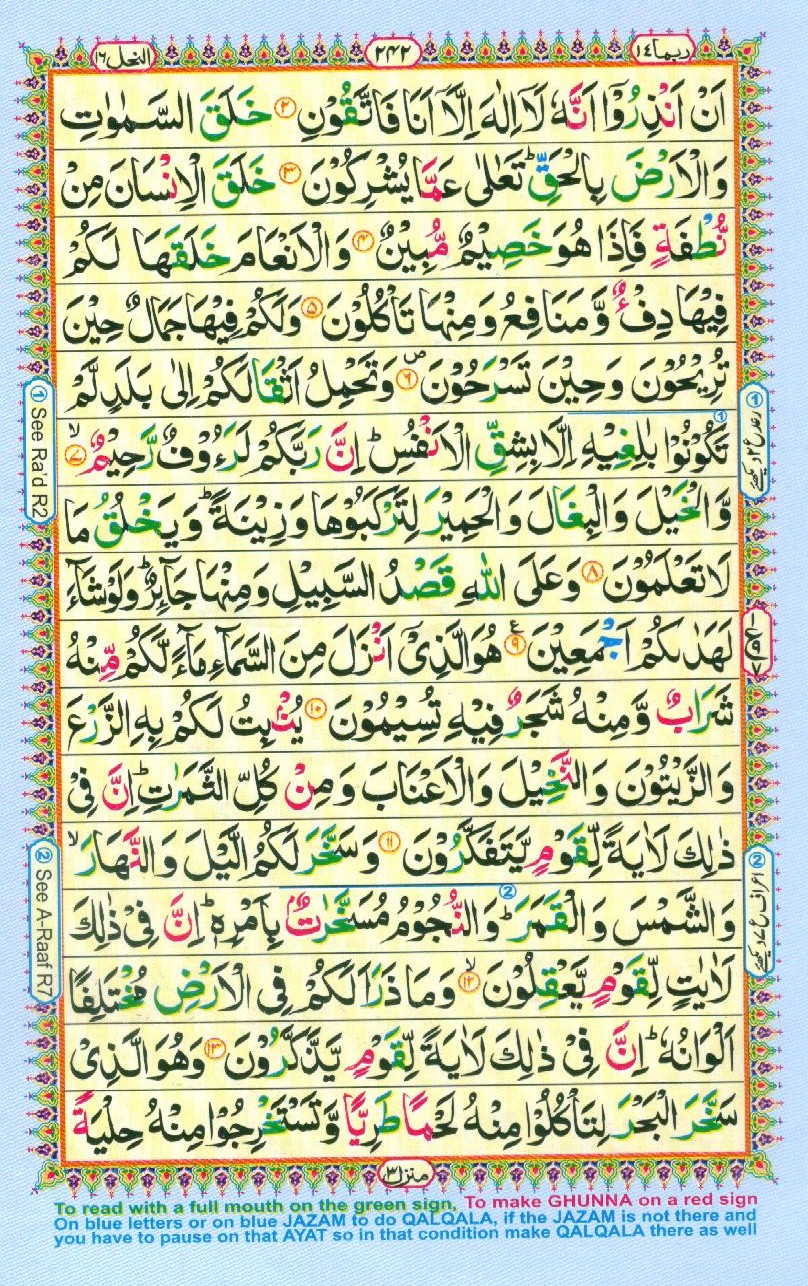 النحل ١٦
٢٤٢
ربما ١٤
اَنْ اَنْذِرُوْۤا اَنَّهٗ لَاۤ اِلٰهَ اِلَّاۤ اَنَا فَاتَّقُوْنِ ﴿۲﴾ خَلَقَ السَّمٰوٰتِ
وَالْاَرْضَ بِالْحَقِّ ؕ تَعٰلٰى عَمَّا يُشْرِكُوْنَ ﴿۳﴾ خَلَقَ الْاِنْسَانَ مِنْ
نُّطْفَةٍ فَاِذَا هُوَ خَصِيْمٌ مُّبِيْنٌ ﴿۴﴾ وَالْاَنْعَامَ خَلَقَهَا لَكُمْ
فِيْهَا دِفْءٌ وَّمَنَافِعُ وَمِنْهَا تَاْكُلُوْنَ ﴿۵﴾ وَلَكُمْ فِيْهَا جَمَالٌ حِيْنَ
تُرِيْحُوْنَ وَحِيْنَ تَسْرَحُوْنَ ﴿۶﴾ ص وَتَحْمِلُ اَثْقَالَكُمْ اِلٰى بَلَدٍ لَّمْ
تَكُوْنُوْا بٰلِغِيْهِ اِلَّا بِشِقِّ الْاَنْفُسِ ؕ اِنَّ رَبَّكُمْ لَرَءُوْفٌ رَّحِيْمٌ ﴿۷﴾ ۙ
وَّالْخَيْلَ وَالْبِغَالَ وَالْحَمِيْرَ لِتَرْكَبُوْهَا وَزِيْنَةً ؕ وَيَخْلُقُ مَا
لَا تَعْلَمُوْنَ ﴿۸﴾ وَعَلَى اللّٰهِ قَصْدُ السَّبِيْلِ وَمِنْهَا جَآئِرٌ ؕ وَلَوْ شَآءَ
لَهَدٰىكُمْ اَجْمَعِيْنَ ﴿۹﴾ ع هُوَ الَّذِيْۤ اَنْزَلَ مِنَ السَّمَآءِ مَآءً لَّكُمْ مِّنْهُ
شَرَابٌ وَّمِنْهُ شَجَرٌ فِيْهِ تُسِيْمُوْنَ ﴿۱۰﴾ يُنْۢبِتُ لَكُمْ بِهِ الزَّرْعَ
وَالزَّيْتُوْنَ وَالنَّخِيْلَ وَالْاَعْنَابَ وَمِنْ كُلِّ الثَّمَرٰتِ ؕ اِنَّ فِيْ
ذٰلِكَ لَاٰيَةً لِّقَوْمٍ يَّتَفَكَّرُوْنَ ﴿۱۱﴾ وَسَخَّرَ لَكُمُ الَّيْلَ وَالنَّهَارَ ۙ
وَالشَّمْسَ وَالْقَمَرَ ؕ وَالنُّجُوْمُ مُسَخَّرٰتٌۢ بِاَمْرِهٖ ؕ اِنَّ فِيْ ذٰلِكَ
لَاٰيٰتٍ لِّقَوْمٍ يَّعْقِلُوْنَ ﴿۱۲﴾ ۙ وَمَا ذَرَاَ لَكُمْ فِى الْاَرْضِ مُخْتَلِفًا
اَلْوَانُهٗ ؕ اِنَّ فِيْ ذٰلِكَ لَاٰيَةً لِّقَوْمٍ يَّذَّكَّرُوْنَ ﴿۱۳﴾ وَهُوَ الَّذِيْ
سَخَّرَ الْبَحْرَ لِتَاْكُلُوْا مِنْهُ لَحْمًا طَرِيًّا وَّتَسْتَخْرِجُوْا مِنْهُ حِلْيَةً
① رعد ع ٢ دیکھئے
② اعراف ع ٧ دیکھئے
① See Ra'd R2
② See A-Raaf R7
منزل ٣
To read with a full mouth on the green sign, To make GHUNNA on a red sign
On blue letters or on blue JAZAM to do QALQALA, if the JAZAM is not there and
you have to pause on that AYAT so in that condition make QALQALA there as well